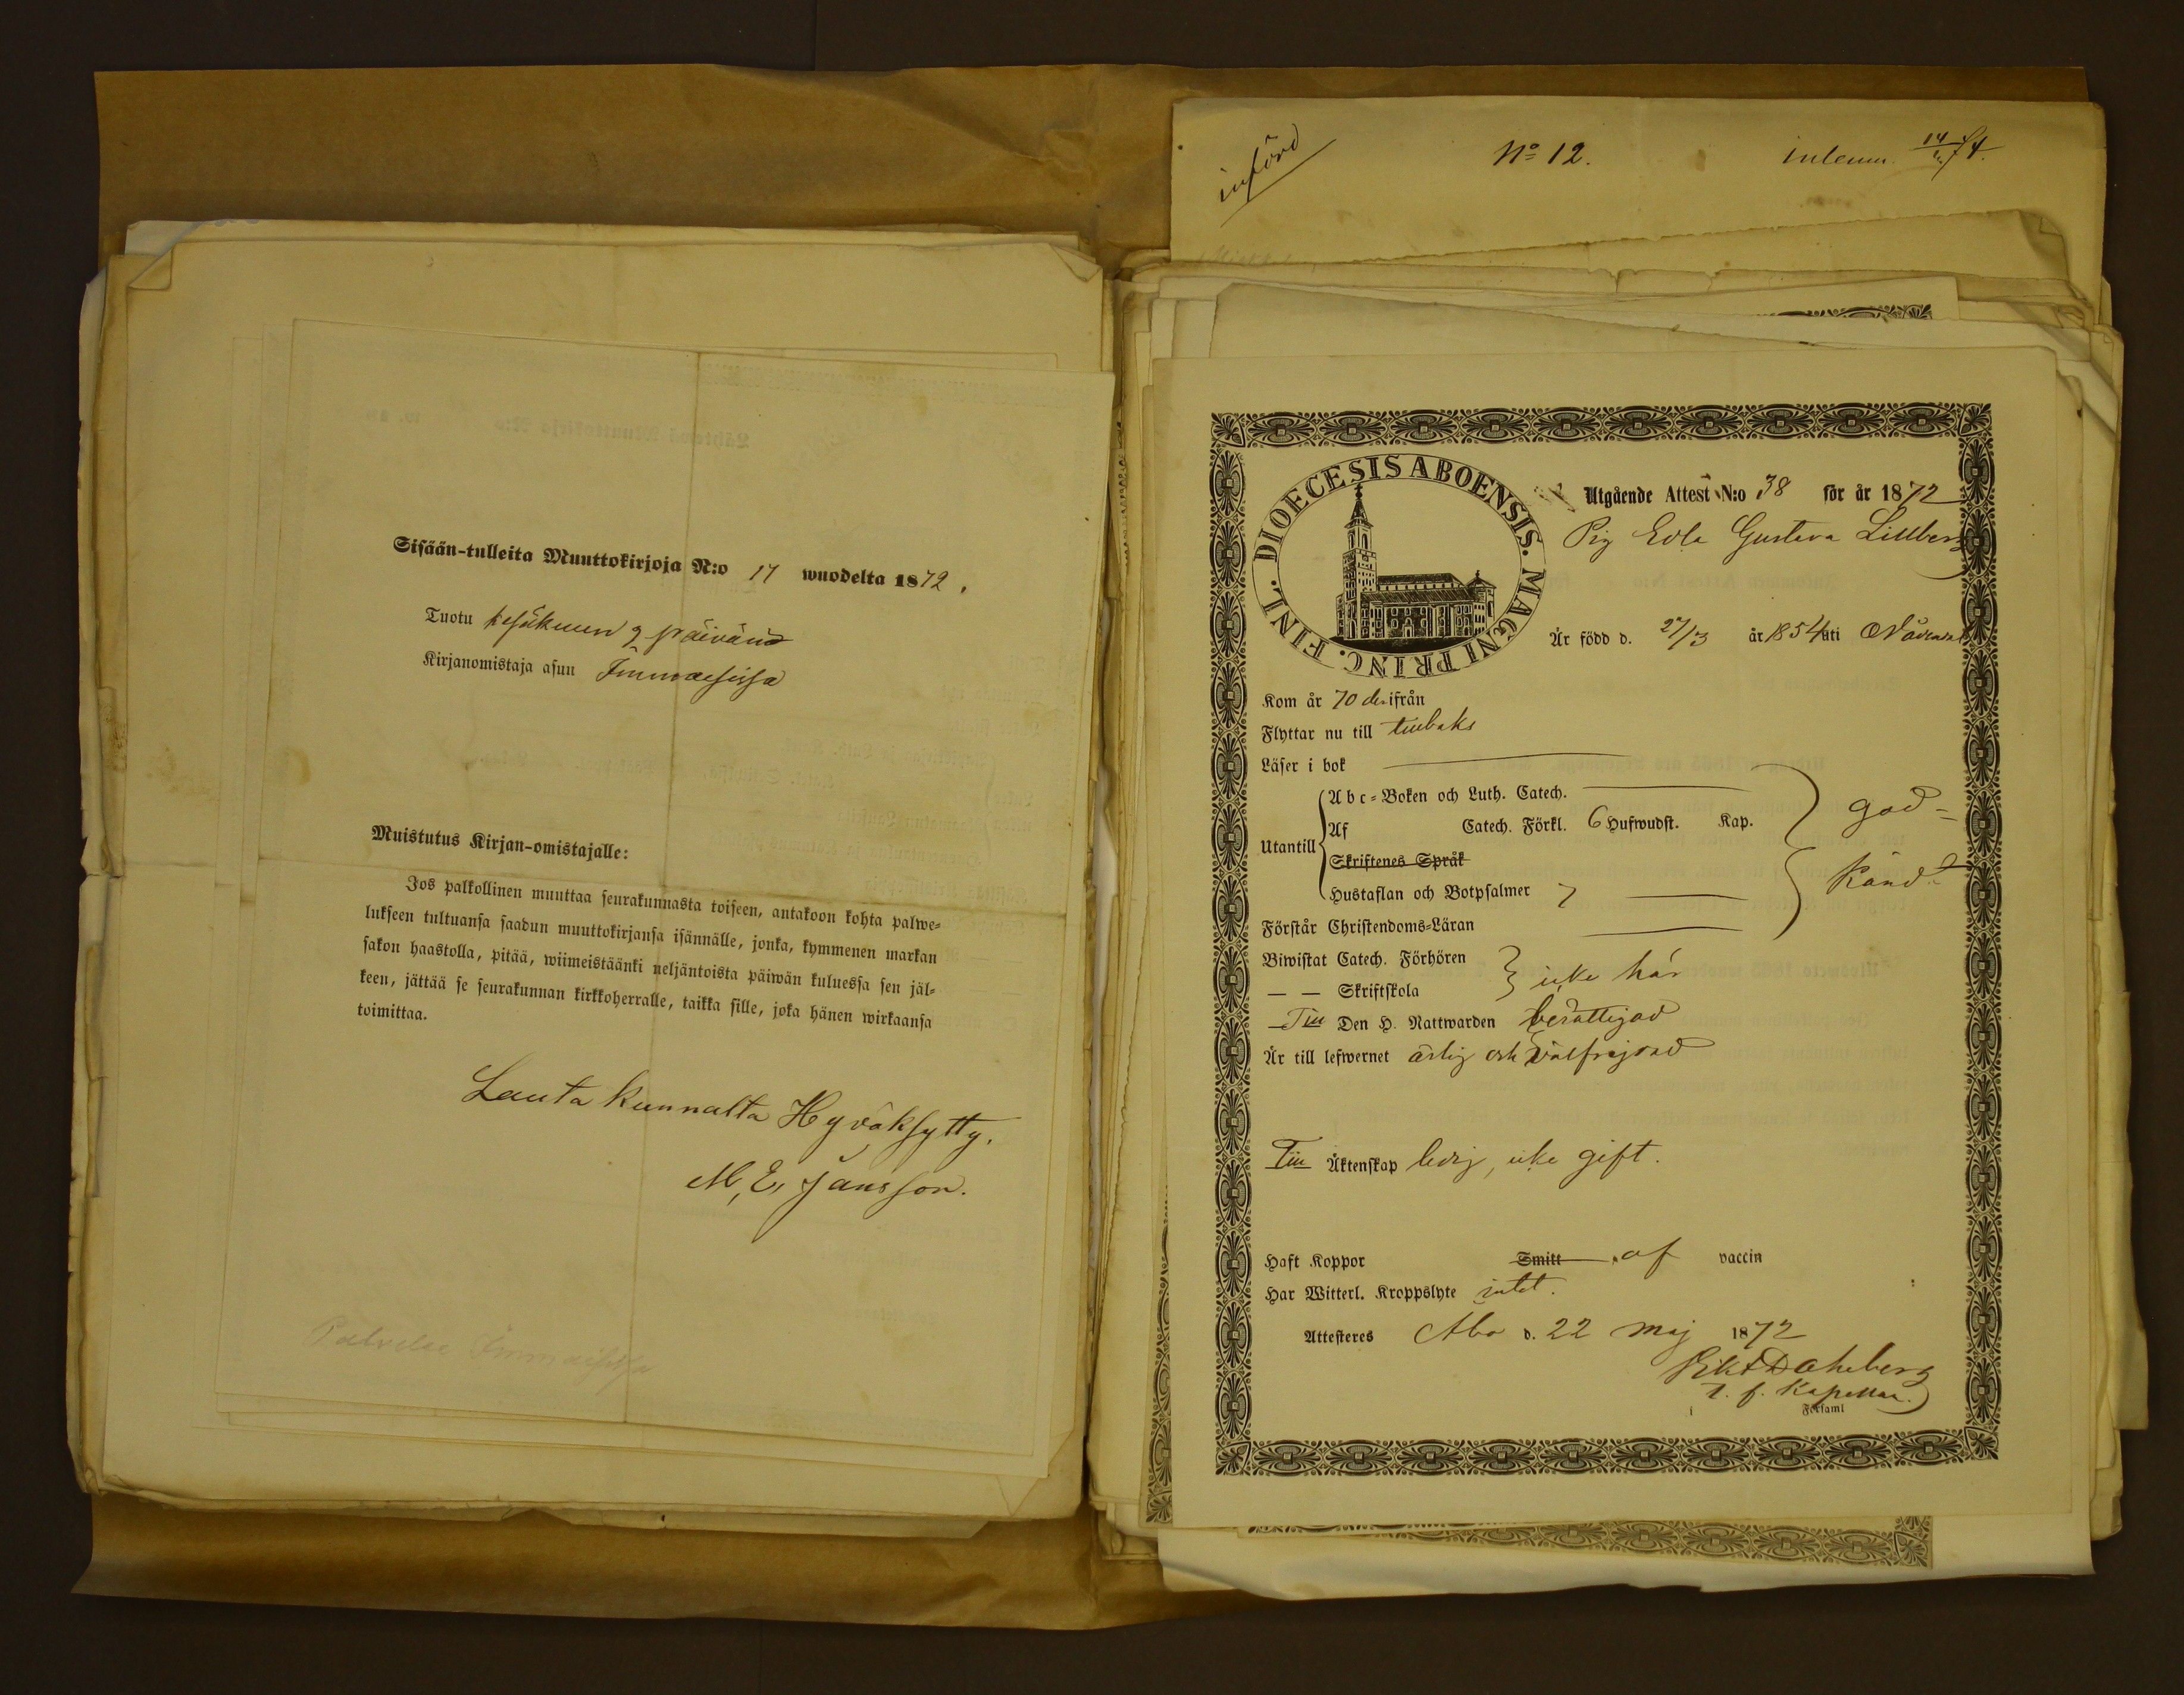 Sisään-tulleita Muuttokirjoja N:o 17 wuodelta 1872.
Tuotu kesäkuun 9 päivänä
Kirjanomistaja asuu Immaisissa
Muistutus Kirjan-omistajalle:
Jos palkollinen muuttaa seurakunnasta toiseen, antakoon kohta palwe-
lukseen tultuansa saadun muuttokirjansa isännälle, jonka, kymmenen markan
sakon haastolla, pitää, wiimeistäänki neljäntoista päiwän kuluessa sen jäl-
keen, jättää se seurakunnan kirkkoherralle, taikka sille, joka hänen wirkaansa
toimittaa.
Lautakunnalta Hyväksytty.
M. E. Jansson.
Palvelee Immaisissa
införd
No 12.
inlemn. 14/ 74.
DIOECESIS ABOENSIS. MAGNI PRINC. FINL.
Utgående Attest N:o 38 för år 1872
Pig Edla Gustava Lillberg
Är född d. 27/3 år 1854 uti Nådendal
Kom år 70 derifrån
Flyttar nu till tillbaks
Läser i bok
Utantill
Abc-Boken och Luth. Catech.
Af Catech. Förkl. 6 Hufwudst. Kap.
Skriftenes Språk
Hustaflan och Botpsalmer 7
god-
känd
Förstår Christendoms-Läran
Biwistat Catech. Förhören
— — Skriftskola
icke här
Till Den H. Nattwarden berättigad
Är till lefwernet ärlig och välfrejdad
Till Äktenskap ledig, icke gift.
Haft Koppor Smitt af vaccin
Har Witterl. Kroppslyte intet.
Attesteres Åbo d. 22 maj 1872
Dahlberg
t. f. Kapellan.
Församl